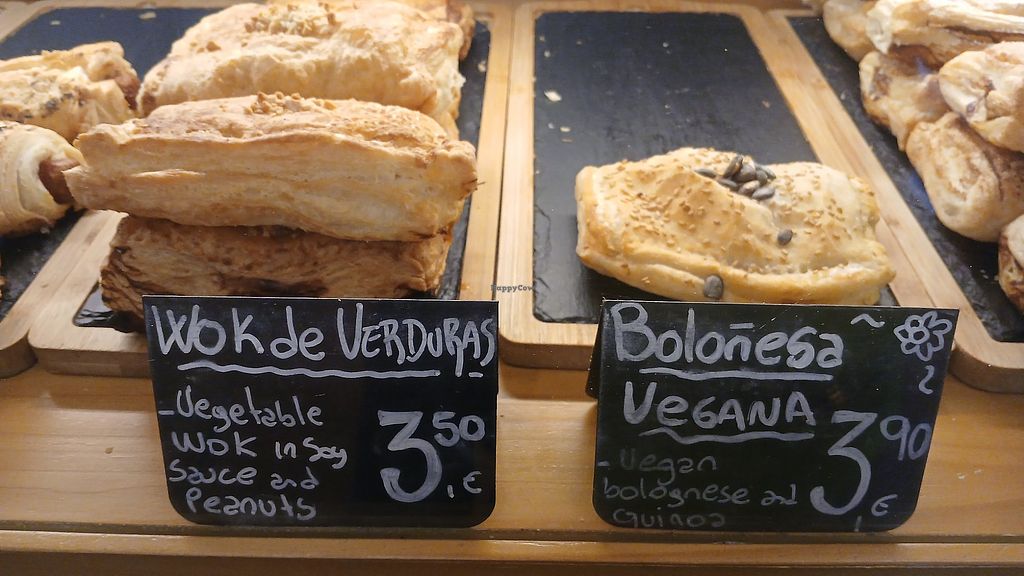 Wok de VERDURAS
- Vegetable
Wok in Soy
Sauce and
Peanuts
3,50 €
Boloñesa
VEGANA
- Vegan
bolognese and
quinoa
3,90 €
HappyCow